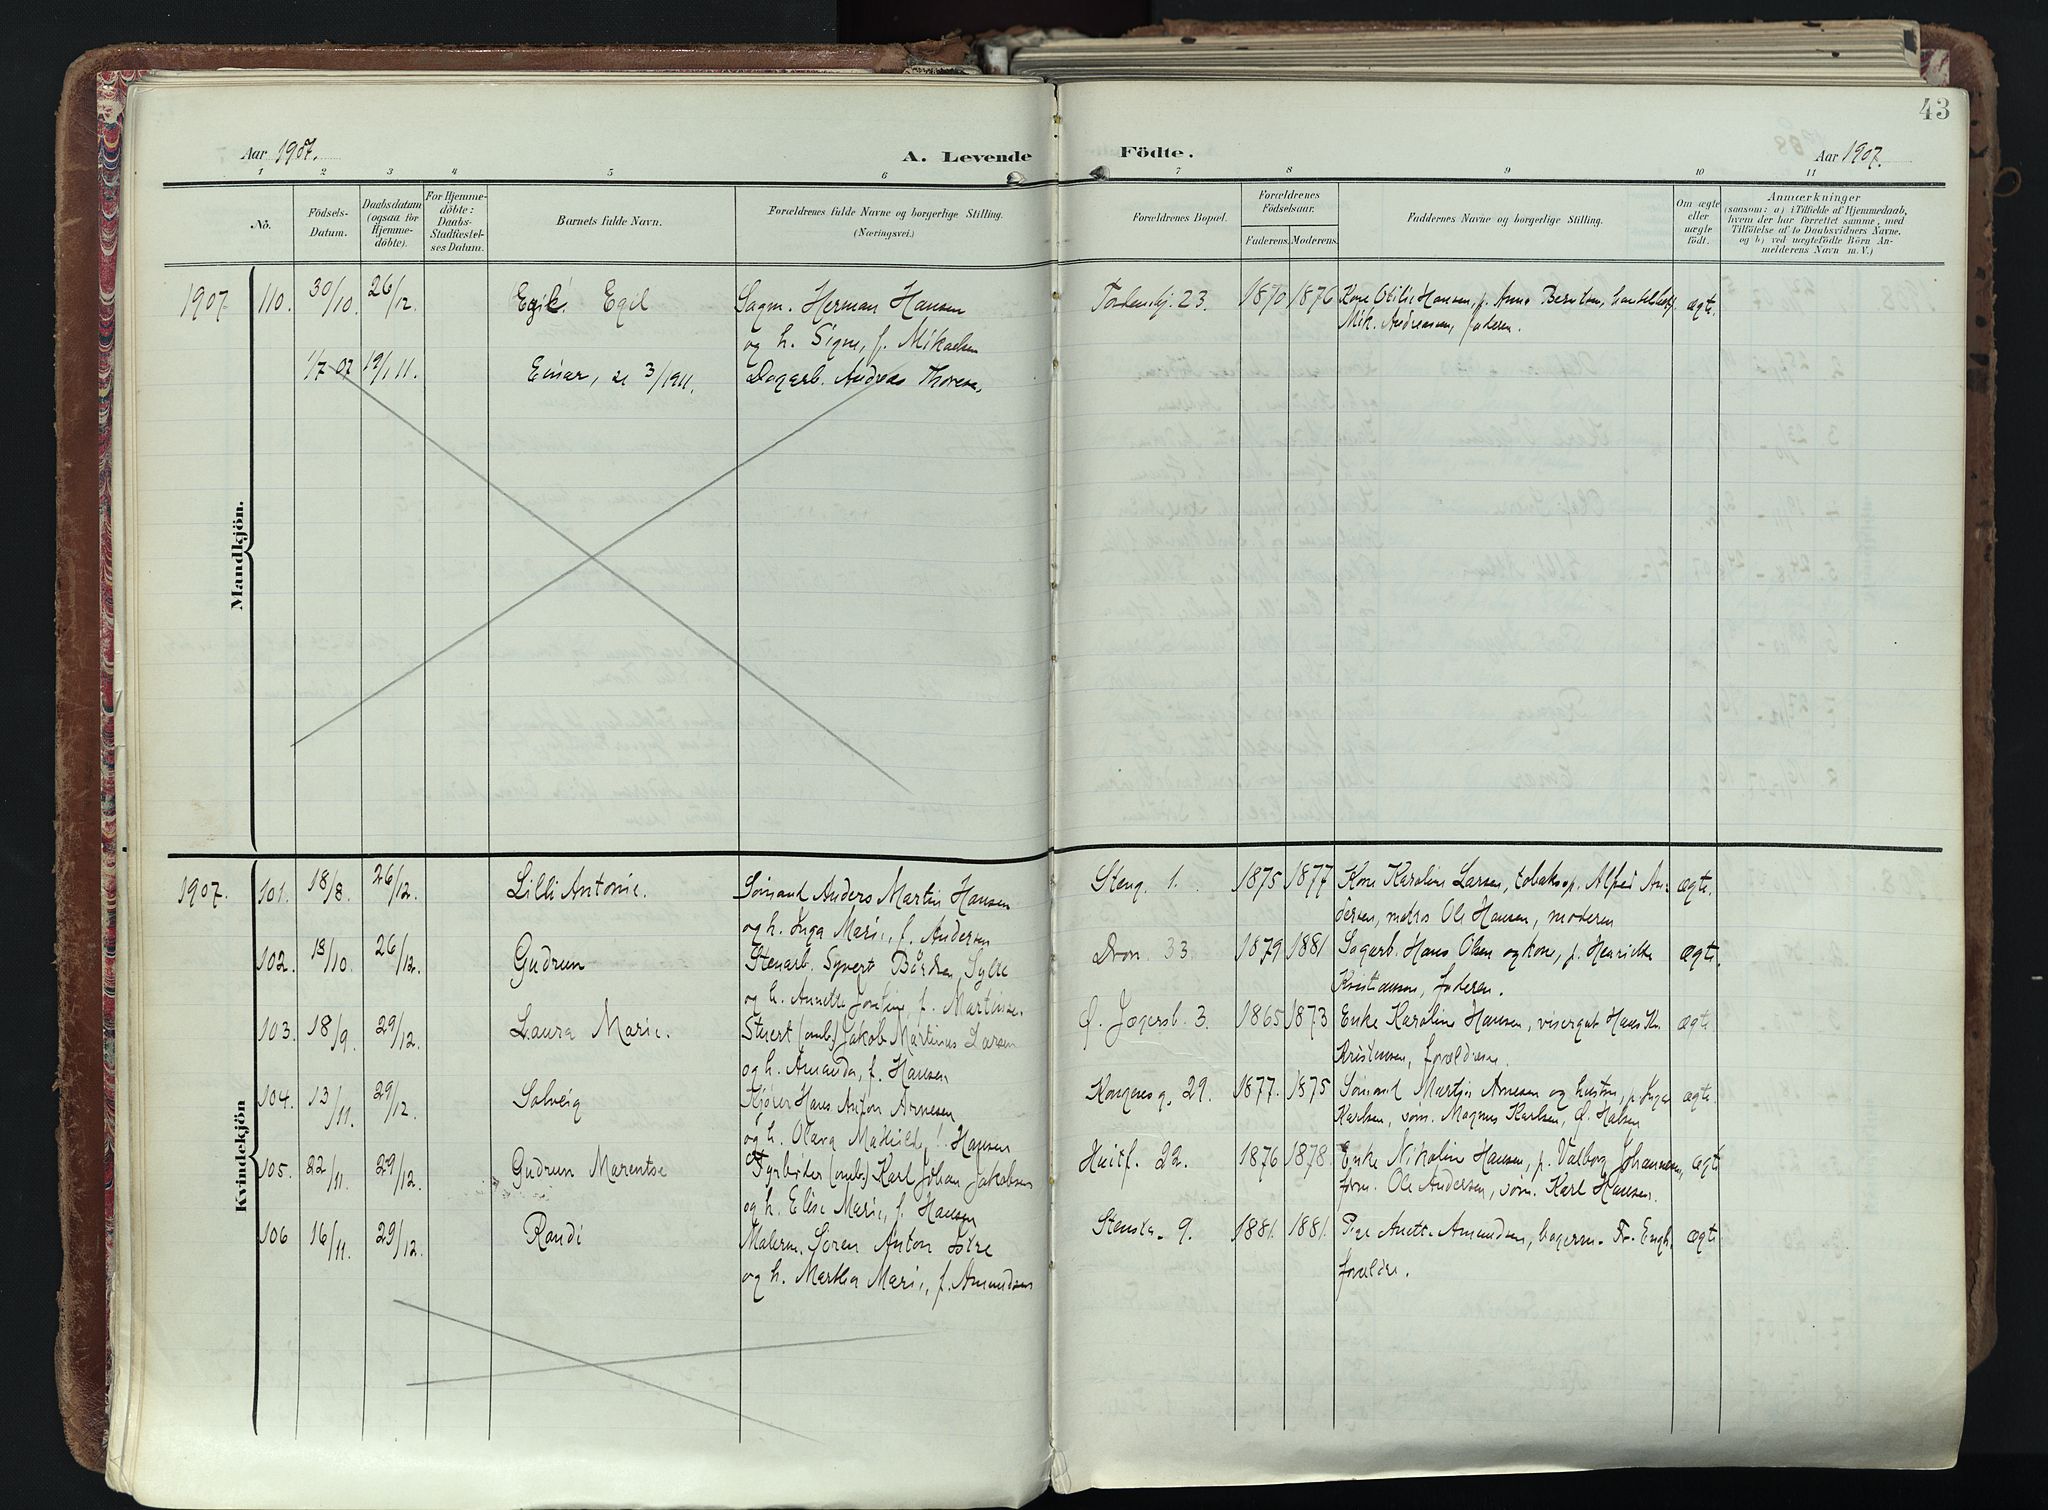 43
Aar 1907.
A. Levende Födte.
Aar 1907.
1 2 3 4 5 6 7 8 9 10 11
No.
Födsels-
Datum.
Daabsdatum
(ogsaa for
Hjemme-
döbte).
For Hjemme-
döbte:
Daabs-
Stadfæstel-
ses Datum.
Barnets fulde Navn.
Forældrenes fulde Navne og borgerlige Stilling.
(Næringsvei.)
Forældrenes Bopæl.
Forældrenes
Födselsaar.
Faderens. Moderens.
Faddernes Navne og borgerlige Stilling.
Om ægte
eller
uægte
födt.
Anmærkninger
(saasom: a) i Tilfælde af Hjemmedaab,
hvem der har forrettet samme, med
Tilföielse af to Daabsvidners Navne,
og b) ved uægtefödte Börn An-
melderens Navn m. V.)
Mandkjön.
1907 110. 30/10. 26/12. Egil Sagm. Herman Hansen Tordenskj. 23. 1870 1876 Kone Otilie Hansen, p. Anna Berntsen, ægte.
og h. Signe, f. Mikaelsen Mik. Andreassen, faderen.
1/7 07 19/1 11. Einar, 3/1911. Dagarb. Andreas Thoresen,
Kvindekjön
1907. 101. 18/8. 26/12. Lilli Antonie. Sømand Anders Martin Hansen Steng. 1. 1875 1877 Kone Karoline Larsen, tobaksp. Alfred An- ægte.
og h. Inga Marie, f. Andersen dersen, matros Ole Hansen, moderen
102. 13/10. 26/12. Gudrun Stenarb. Syvert Bårdsen Sylte Dron. 33 1879 1881. Sagarb. Hans Olsen og kone, p. Henrikke ægte.
og h. Annette Josefine f. Martinsen. Kristiansen, faderen.
103. 18/9. 29/12. Laura Marie. Stuert (omb.) Jakob Martinus Larsen Ø. Jegersb. 3. 1865 1873 Enke Karoline Hansen, visergut Hans Kr. ægte
og h. Amanda, f. Hansen Kristiansen, forældrene.
104. 13/11. 29/12. Solveig Kjører Hans Anton Arnesen Kongensg. 29. 1877. 1875 Sømand Martin Arnesen og hustru, p. Inga ægte.
og h. Olava Mathilde f. Hansen Karlsen, søm. Magnus Karlsen, O. Halsen
105. 22/11. 29/12. Gudrun Marentse Fyrbøder (omb.) Karl Johan Jakobsen Huitf. 22. 1876 1878. Enke Nikoline Hansen, p. Valborg Johannesen, ægte
og h. Elise Marie, f. Hansen form. Ole Andersen, søm. Karl Hansen.
106 16/11. 29/12. Randi Malerm. Søren Anton Istre Stensta. 9. 1881. 1881. Pige Anette Amundsen, bagerm. Fr. Engh. ægte
og h. Martha Marie, f. Amundsen forældre.